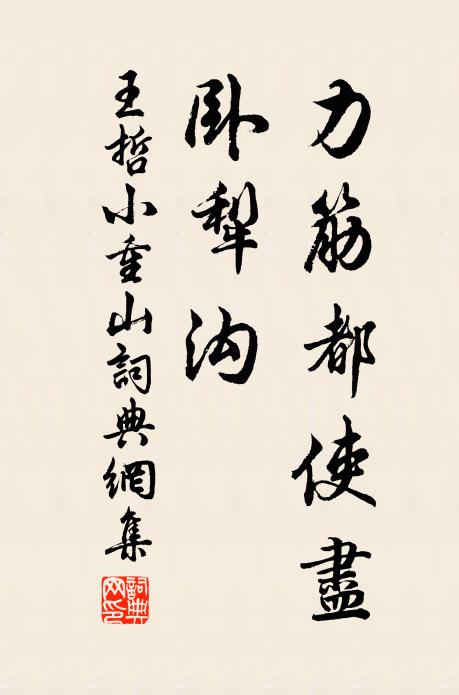 力筋都使盡
卧犁沟
王哲小重山詞典網集
詞典網印